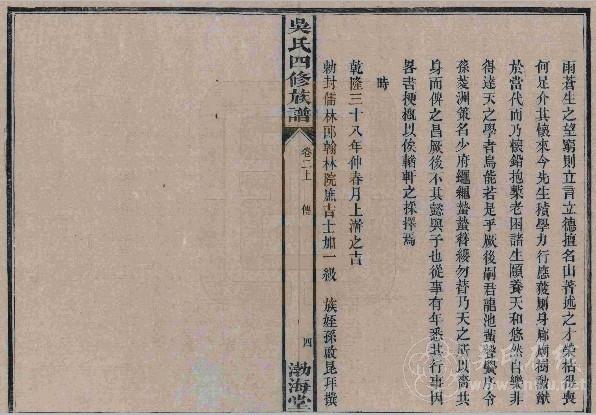 雨蒼生之望窮則立言立德擅名山著述之才榮枯得喪
何足介其懷來今先生殖學力行應獲廁身廊廟樹勳猷
於當代而乃懷鉛抱槧老困諸生頤養天和悠然自樂非
得達天之學者烏能若是乎厥後嗣君龍池蜚聲黌序今
孫菱洲策名少府繩繩蟄蟄簪纓勿替乃天之所以嗇其
身而俾之昌厥後不其懿與予也從事有年悉其行事因
畧書梗概以俟輶軒之採擇焉
時
乾隆三十八年仲春月上澣之吉
勅封儒林郎翰林院庶吉士加一級 族姪孫政昆拜撰
吳氏四修族譜
卷二上 傳
四
渤海堂